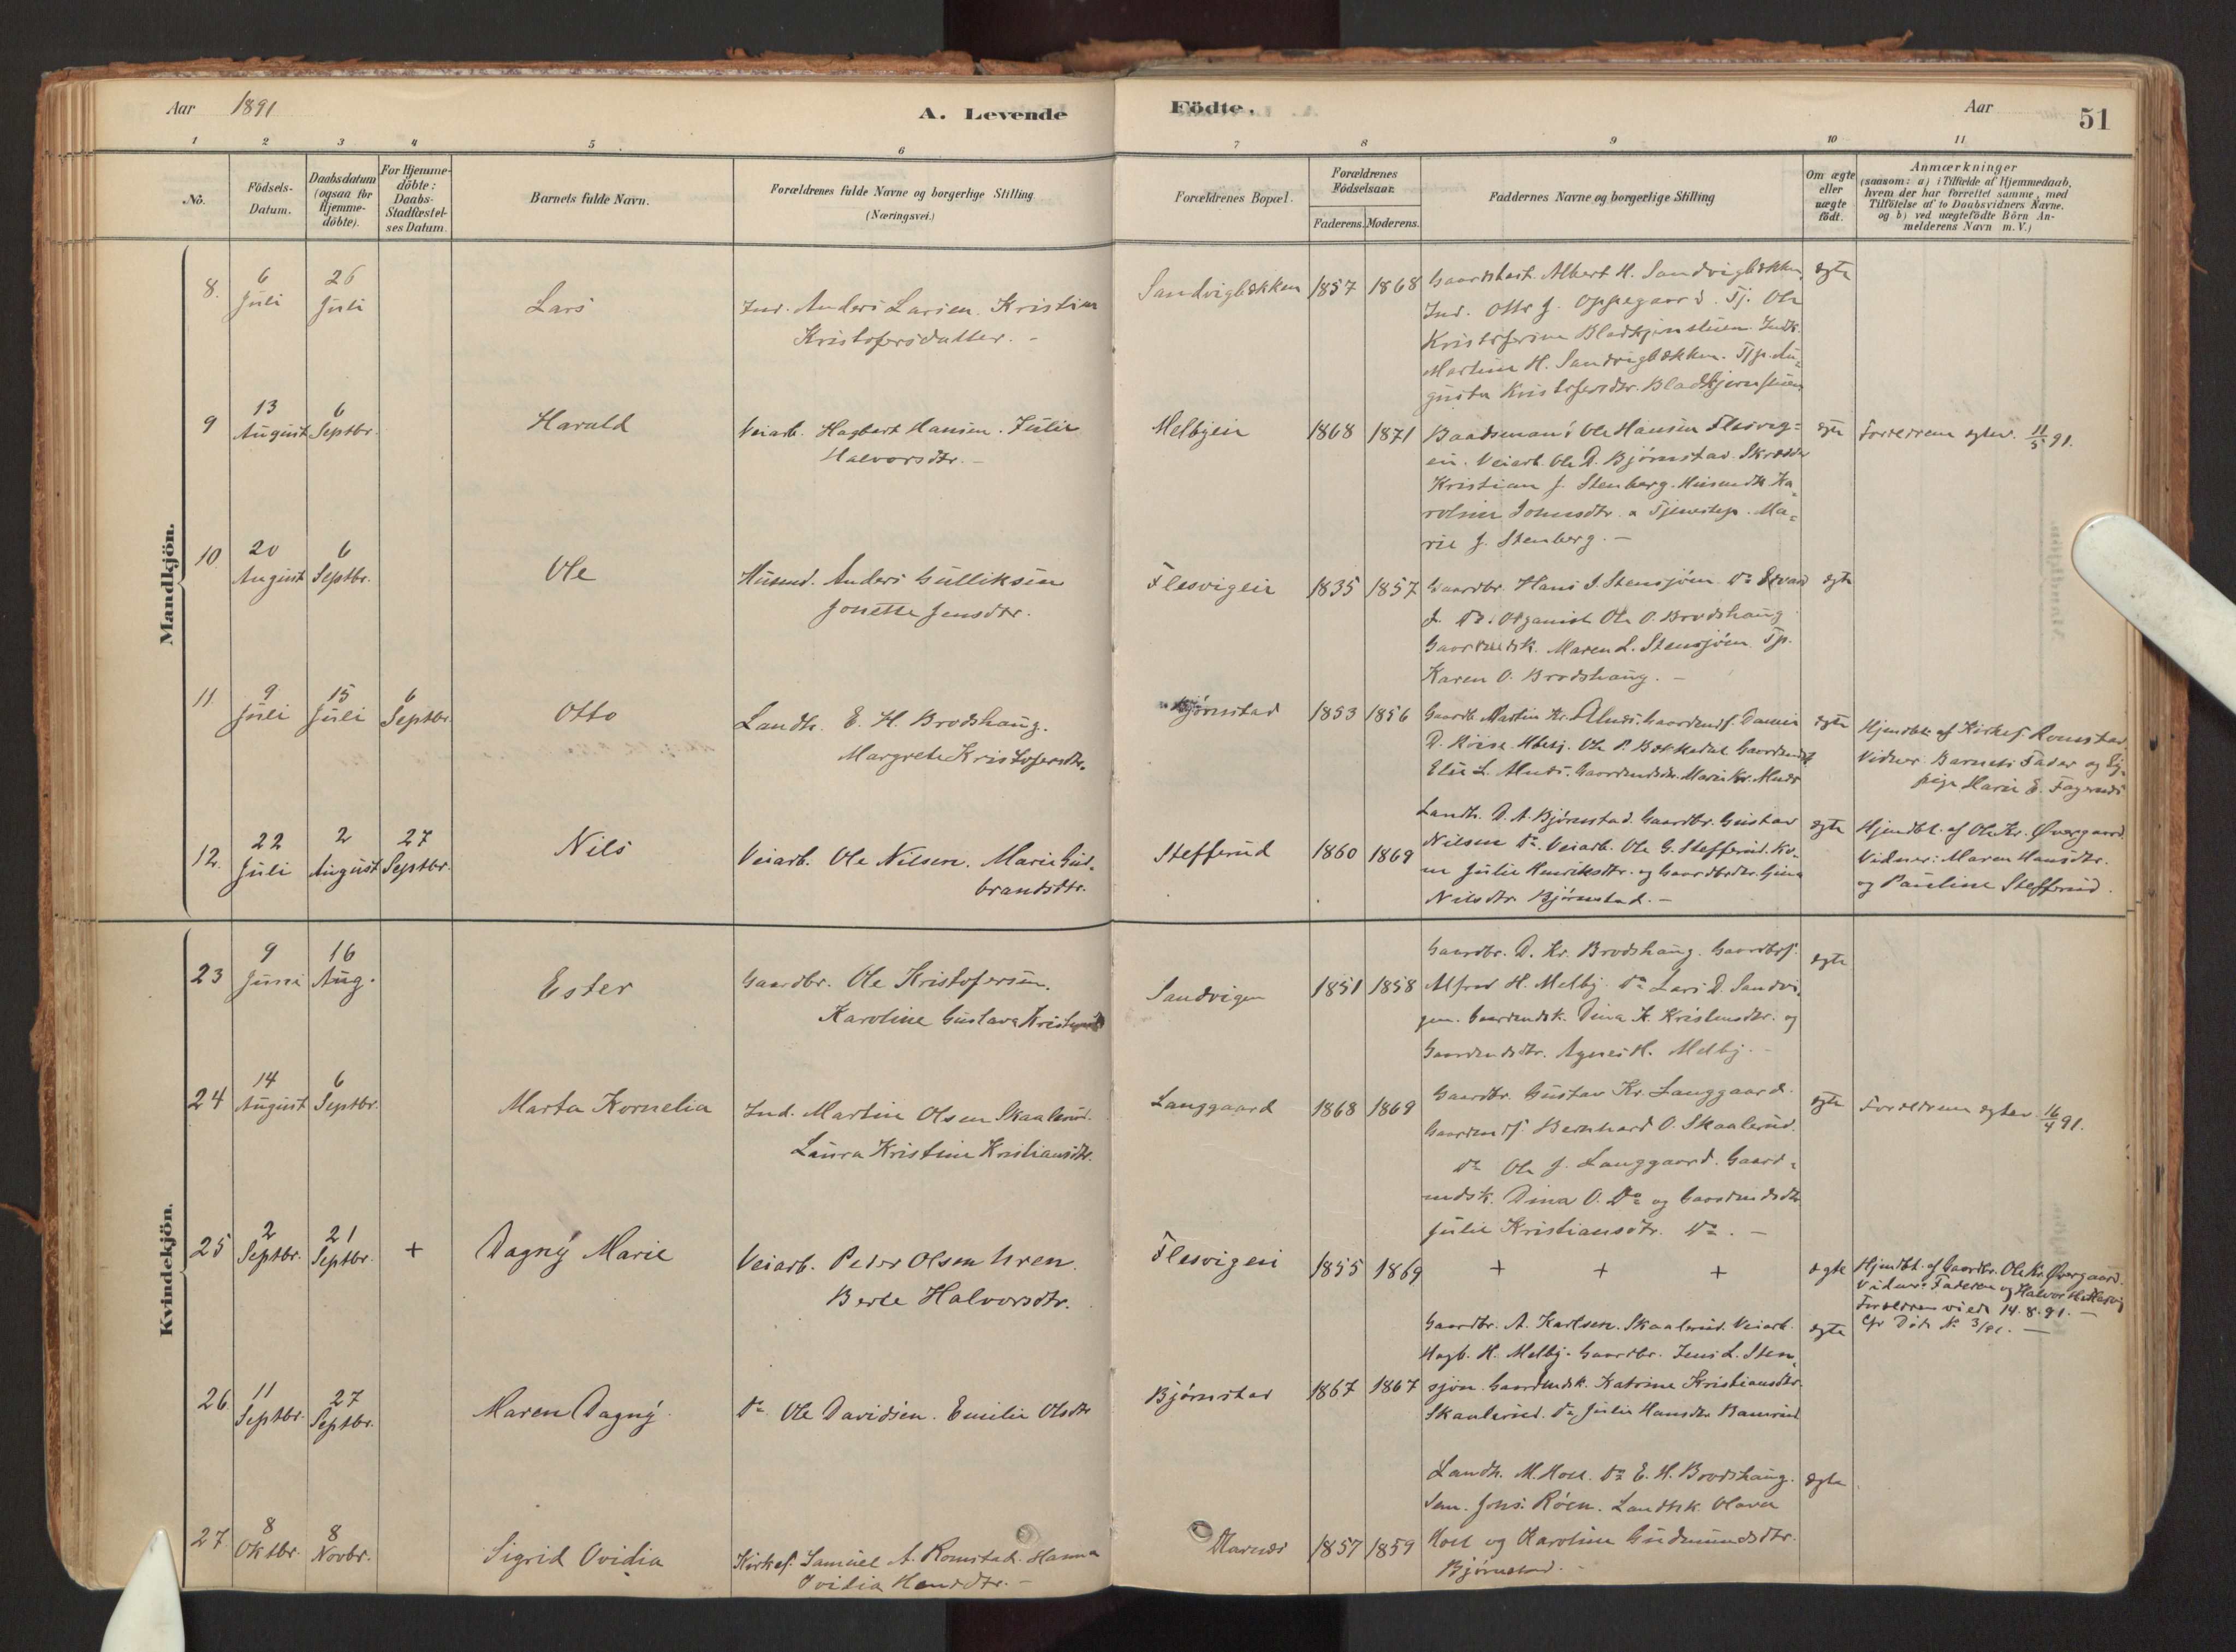 Aar 1891
A. Levende
Födte.
Aar
51
1 2 3 4 5 6 7 8 9 10 11
No.
Födsels-
Datum.
Daabsdatum
(ogsaa for
Hjemme-
döbte).
For Hjemme-
döbte:
Daabs-
Stadfæstel-
ses Datum.
Barnets fulde Navn.
Forældrenes fulde Navne og borgerlige Stilling
(Næringsvei.)
Forældrenes Bopæl.
Forældrenes
Födselsaar.
Faderens. Moderens.
Faddernes Navne og borgerlige Stilling
Om ægte
eller
uægte
födt.
Anmærkninger
(saasom: a) i Tilfælde af Hjemmedaab,
hvem der har forrettet samme, med
Tilföielse af to Daabsvidners Navne.
og b) ved uægtefödte Börn An-
melderens Navn m. V.)
Mandkjön.
8. 6 Juli 26 Juli
Lars
Ind. Anders Larsen. Kristine
Kristofersdatter. -
Sandvigbækken 1857 1868
Albert H. Sandvigbækken
Ind. Otto J. Oppegaard. Tj. Ole
Martine H. Sandvigbækken.
ægte
9 13 August 6 Septbr.
Harald
Veiarb. Hagbart Hansen. Julie
Halvorsdtr. -
Melbyeie 1868 1871
Baadsmand Ole Hansen Flesvig=
ein. Veiarb. Ole D. Bjørnstad. Skrædder
Kristian J. Stenberg. Husmdk Ka=
roline Johnsdtr. & Tjenestep. Ma=
rie J. Stenberg. -
ægte
Forældrene egtev. 11/5 91.
10 20 August 6 Septbr.
Ole
Husmd. Anders Gulliksen
Jonette Jensdtr.
Flesvigeie 1835 1857
Gaardbr. Hans I. Stensjøen. Do Edvard
J. Do. Organist Ole O. Brodshaug.
Gaardmdsk. Maren L. Stensjøen. Tjp.
Karen O. Brodshaug. -
ægte
11. 9 Juli 15 Juli 6 Septbr.
Otto
Landh. E. H. Brodshaug.
Margrete Kristofersdtr.
Bjørnstad 1853 1856
ægte
Hjemdbt. af Kirkes. Romstad
Vidner Barnets Fader og
pige Marie E.
12. 22 Juli 2 August 27 Septbr.
Nils
Veiarb. Ole Nilsen. Marie Gud-
brandsdtr.
Stefferud 1860 1869
Landh. D. A. Bjørnstad. Gaardbr. Gustav
Nilsen Do. Veiarb. Ole G. Stefferud. Ko-
ne Julie Henriksdtr. og Gaardbrdtr. Gina
Nilsdtr. Bjørnstad. -
ægte
Hjemdbt. af Ole Kr. Øvergaard.
Vidner: Maren Hansdtr.
og Pauline Stefferud.
Kvindekjön.
23 9 Juni 16 Aug.
Ester
Gaardbr. Ole Kristofersen.
Karoline Gustava
Sandvigen 1851 1858
Gaardbr. D. Kr. Brodshaug. Gaardbrs.
Alfred H. Melby. Do Lars D. Sandvi-
gen. Gaardmdsk. Dina K. Kristensdtr. og
Gaardmdsdtr. Agnes H. Melby. -
ægte
24 14 August 6 Septbr.
Marta Kornelia
Ind. Martin Olsen Skaalerud.
Laura Kristine Kristiansdtr.
Langgaard 1868 1869
Gaardbr. Gustav Kr. Langgaard.
Gaardmds. Bernhard O. Skaalerud.
Do Ole J. Langgaard. Gaard-
mdsk. Dina O. Do og Gaardmdsdtr
Julie Kristiansdtr. Do. -
ægte
Forældrene egtev. 16/4 91.
25 2 Septbr. 21 Septbr. +
Dagny Marie
Veiarb. Peder Olsen Uren.
Berte Halvorsdtr.
Flesvigeie 1855 1869
+ + +
ægte
Hjemdbt. af Gaardbr. Ole Kr. Øvergaard.
Vidner: Faderen og Halvor
Forældrene viede 14.8.91. -
Cfr Døde No 3/91. -
26. 11 Septbr. 27 Septbr.
Maren Dagny
Do Ole Davidsen. Emilie Olsdtr
Bjørnstad 1867 1867
Gaardbr. A. Karlsen. Skaalerud. Veiarb.
Hagb. H. Melby. Gaardbr. Jens L. Sten-
sjøen. Gaardmdsk. Katrine Kristiansdtr.
Skaalerud. Do Julie Hansdtr.
ægte
27. 8 Oktbr. 8 Novbr.
Sigrid Ovidia
Kirkes. Samuel A. Romstad. Hanna
Ovidia Hansdtr. -
1857 1859
Landh. M. Moe. Do E. H. Brodshaug.
Sem. Johs. Røen. Landhsk. Olava
Moe og Karoline Gudmundsdtr.
Bjørnstad. -
ægte